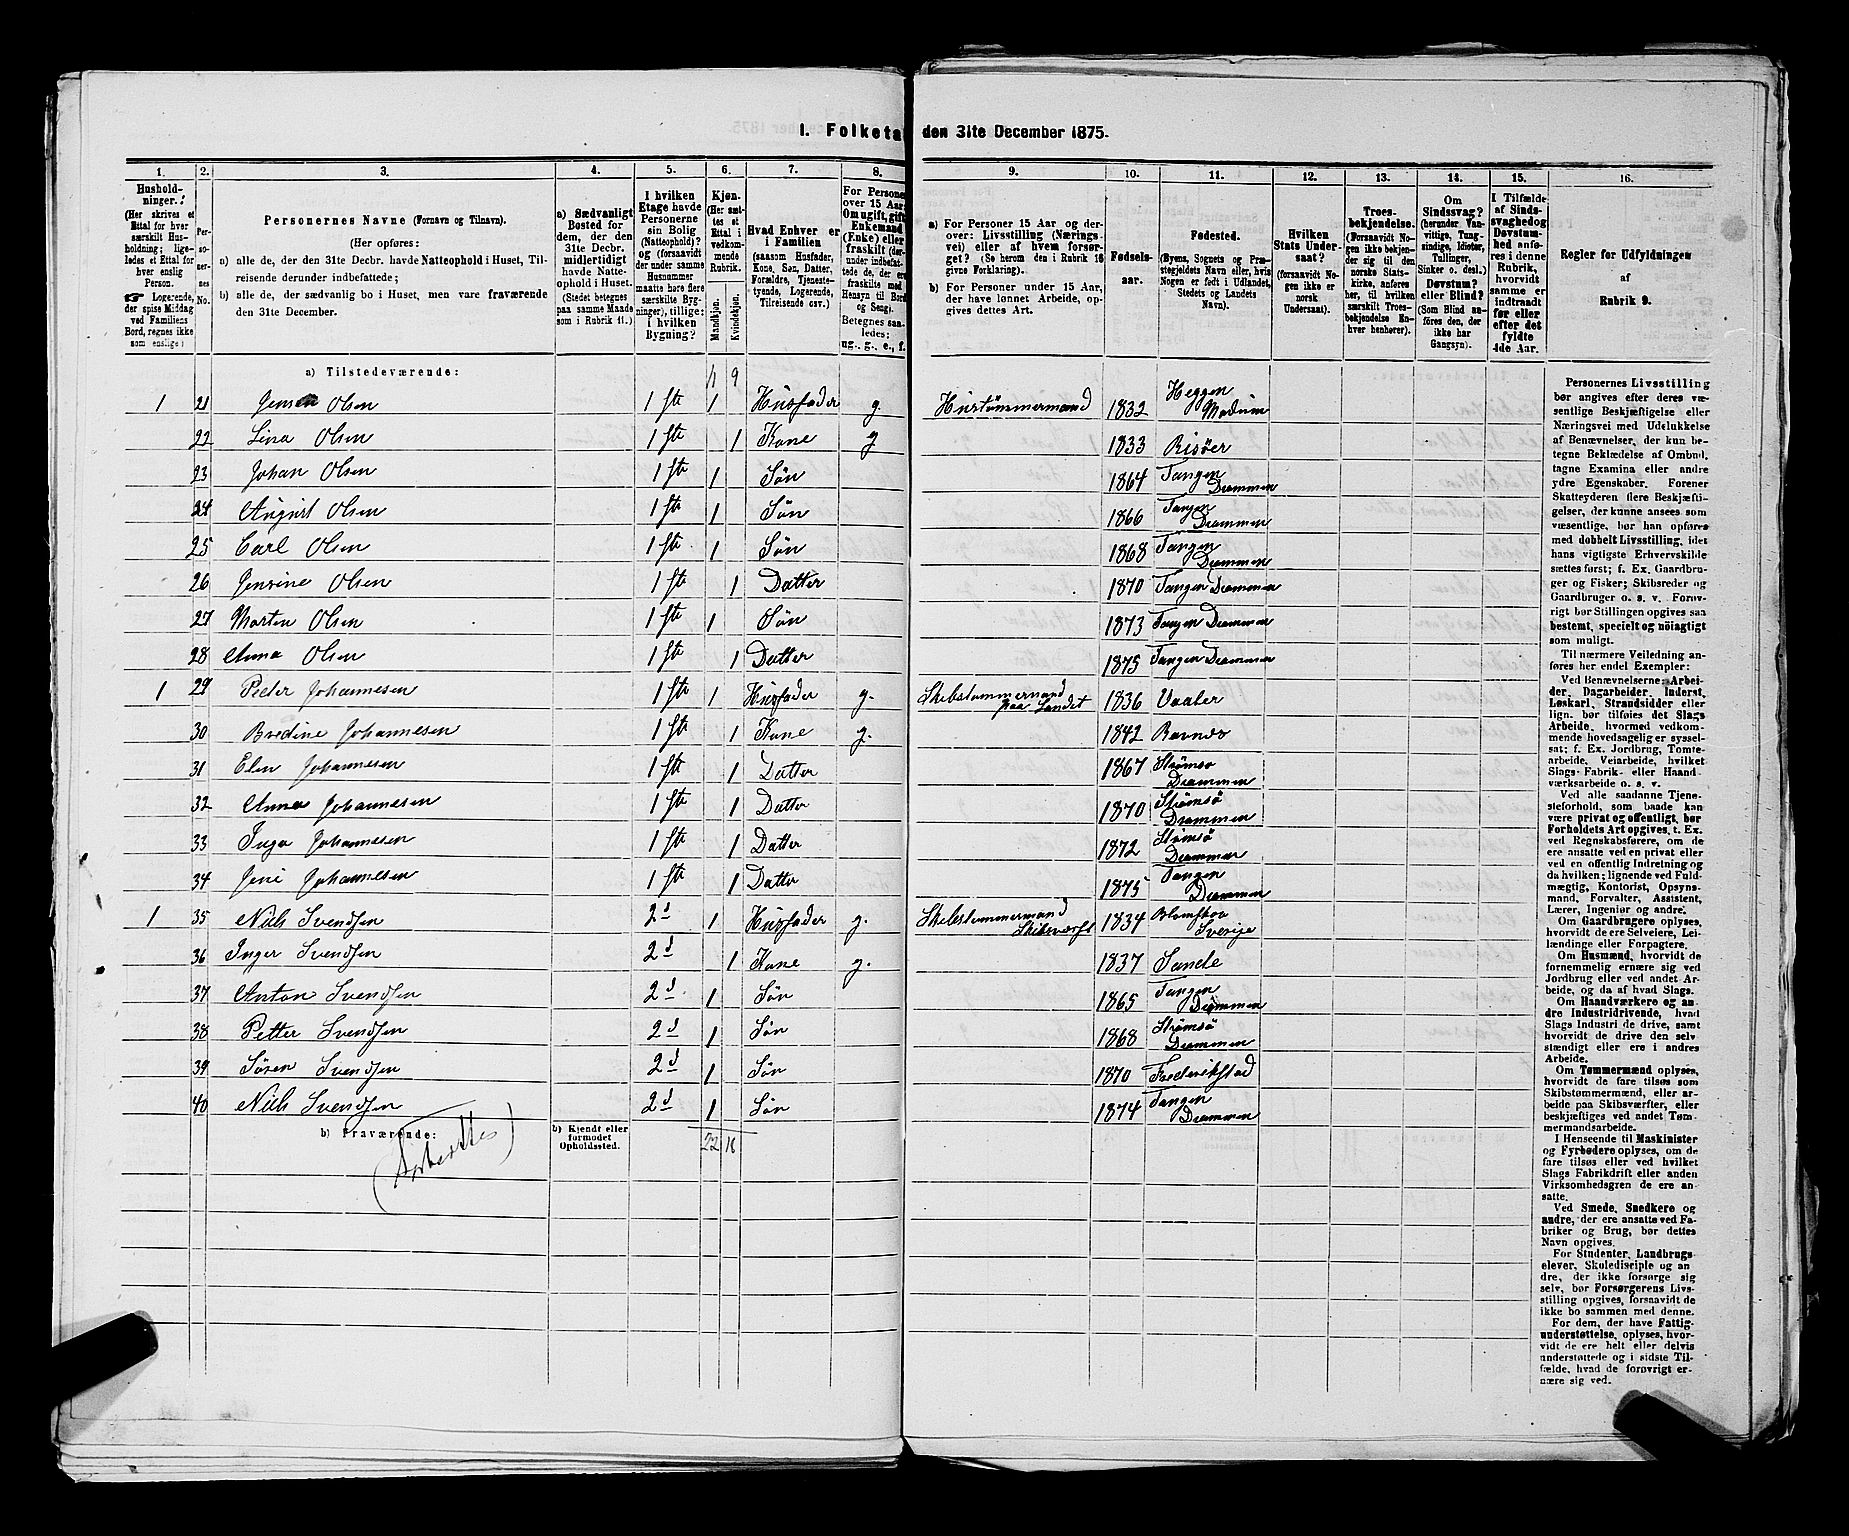 1. Folketal den 31te December 1875.
1. 2. 3. 4. 5. 6. 7. 8. 9. 10. 11. 12. 13. 14. 15. 16.
Hushold-
ninger.
(Her skrives et
Ettal for hver
særskilt Hus-
holdning; lige-
ledes et Ettal for
hver enslig
Person.
☞ Logerende,
der spise Middag
ved Familiens
Bord, regnes ikke
som enslige.)
Per-
so-
ner-
nes
No.
Personernes Navne (Fornavn og Tilnavn).
(Her opføres:
a) alle de, der den 31te Decbr. havde Natteophold i Huset, Til-
reisende derunder indbefattede;
b) alle de, der sædvanlig bo i Huset, men vare fraværende
den 31te December.
a) Sædvanligt
Bosted for
dem, der den
31te Decbr.
midlertidigt
havde Natte-
ophold i Huset.
(Stedet betegnes
paa samme Maade
som i Rubrik 11.)
I hvilken
Etage havde
Personerne
sin Bolig
(Natteophold)?
og (forsaavidt
der under samme
Husnummer
maatte høre flere
særskilte Byg-
ninger), tillige:
i hvilken
Bygning?
Kjøn.
(Her sæt-
tes et
Ettal i
vedkom-
mende
Rubrik.)
Mandkjøn.
Kvindekjøn.
Hvad Enhver er
i Familien
(saasom Husfader,
Kone, Søn, Datter,
Forældre, Tjeneste-
tyende, Logerende,
Tilreisende osv.)
For Personer
over 15 Aar:
Om ugift, gift,
Enkemand
(Enke) eller
fraskilt (der-
under indbefat-
tede de, der ere
fraskilte med
Hensyn til Bord
og Seng).
Betegnes saa-
ledes:
ug., g., e., f.
a) For Personer 15 Aar og der-
over: Livsstilling (Nærings-
vei) eller af hvem forsør-
get? (Se herom den i Rubrik 16
givne Forklaring).
b) For Personer under 15 Aar,
der have lønnet Arbeide, op-
gives dettes Art.
Fødsels-
aar.
Fødested.
(Byens, Sognets og Præ-
stegjeldets Navn eller, hvis
Nogen er født i Udlandet,
Stedets og Landets
Navn).
Hvilken
Stats Under-
saat?
(forsaavidt No-
gen ikke er
norsk
Undersaat).
Troes-
bekjendelse.
(Forsaavidt No-
gen ikke bekjen-
der sig til den
norske Stats-
kirke, anføres
her, til hvilken
særskilt Troes-
bekjendelse En-
hver henhører).
Om
Sindssvag?
(herunder Van-
vittige, Tung-
sindige, Idioter,
Tullinger,
Sinker o. desl.)
Døvstum?
eller Blind?
(Som Blind an-
føres den, der
ikke har
Gangsyn).
I Tilfælde
af Sinds-
svaghed og
Døvstum-
hed anfø-
res i denne
Rubrik,
hvorvidt
samme er
indtraadt
før eller
efter det
fyldte
4de Aar.
Regler for Udfyldningen
af
Rubrik 9.
a) Tilstedeværende:
11 9
1 21 Jensen Olsen 1 ste 1 Husfader g. Hustømmermand 1832 Heggen Modum
22 Lina Olsen 1 ste 1 Kone g 1833 Risöer
23 Johan Olsen 1 ste 1 Sön 1864 Tangen Drammen
24 August Olsen 1 ste 1 Sön 1866 Tangen Drammen
25 Carl Olsen 1 ste 1 Sön 1868 Tangen Drammen
26 Jensine Olsen 1 ste 1 Datter 1870 Tangen Drammen
27 Morten Olsen 1 ste 1 Sön 1873 Tangen Drammen
28 Anna Olsen 1 ste 1 Datter 1875 Tangen Drammen
1 29 Peder Johannesen 1 ste 1 Husfader g. Skibstømmermand paa Landet 1836 Vaaler
30 Bredine Johannesen 1 ste 1 Kone g. 1842 Bamnes
31 Elen Johannesen 1 ste 1 Datter 1867 Strømsø Drammen
32 Anna Johannesen 1 ste 1 Datter 1870 Strömsö Drammen
33 Inga Johannesen 1 ste 1 Datter 1872 Strömsö Drammen
34 Jeni Johannesen 1 ste 1 Datter 1875 Tangen Drammen
1 35 Niels Svendsen 2 d 1 Husfader g. Skibstømmermand Skibsværft 1834 Sverige
36 Inger Svendsen 2 d 1 Kone g. 1837 Sande
37 Anton Svendsen 2 d 1 Sön 1865 Tangen Drammen
38 Petter Svendsen 2 d 1 Sön 1868 Strömsö Drammen
39 Sören Svendsen 2 d 1 Sön 1870 Frederikstad
40 Niels Svendsen 2 d 1 Sön 1874 Tangen Drammen
b) Fraværende:
b) Kjendt eller
formodet
Opholdssted.
22 18
Personernes Livsstilling
bør angives efter deres væ-
sentlige Beskjæftigelse eller
Næringsvei med Udelukkelse
af Benævnelser, der kun be-
tegne Beklædelse af Ombud,
tagne Examina eller andre
ydre Egenskaber. Forener
Skatteyderen flere Beskjæfti-
gelser, der kunne ansees som
væsentlige, bør han opføres
med dobbelt Livsstilling, idet
hans vigtigste Erhvervskilde
sættes først; f. Ex. Gaardbru-
ger og Fisker; Skibsreder og
Gaardbruger o. s. v. Forøv-
rigt bør Stillingen opgives saa
bestemt, specielt og nöiagtigt
som muligt.
Til nærmere Veiledning an-
føres her endel Exempler:
Ved Benævnelserne: Arbei-
der, Dagarbeider, Inderst,
Løskarl, Strandsidder eller
lign. bør tilføies det Slags
Arbeide, hvormed vedkom-
mende hovedsagelig er syssel-
sat; f. Ex. Jordbrug, Tomte-
arbeide, Veiarbeide, hvilket
Slags Fabrik- eller Haand-
værksarbeide o. s. v.
Ved alle saadanne Tjene-
steforhold, som baade kan
være privat og offentligt, bør
Forholdets Art opgives, t. Ex.
ved Regnskabsførere, om de
ere ansatte ved en privat eller
ved en offentlig Indretning og
da hvilken; lignende ved Fuld-
mægtig, Kontorist, Opsyns-
mand, Forvalter, Assistent,
Lærer, Ingeniør og andre.
Om Gaardbrugere oplyses,
hvorvidt de ere Selveiere, Lei-
lændinge eller Forpagtere.
Om Husmænd, hvorvidt de
fornemmelig ernære sig ved
Jordbrug eller ved andet Ar-
beide, og da af hvad Slags.
Om Haandværkere og an-
dre Industridrivende, hvad
Slags Industri de drive, samt
hvorvidt de drive den selv-
stændigt eller ere i andres
Arbeide.
Om Tømmermænd oplyses,
hvorvidt de fare tilsøs som
Skibstømmermænd, eller ar-
beide paa Skibsværfter, eller
beskjæftiges ved andet Tøm-
mermandsarbeide.
I Henseende til Maskinister
og Fyrbødere oplyses, om de
fare tilsøs eller ved hvilket
Slags Fabrikdrift eller anden
Virksomhedsgren de ere an-
satte.
Ved Smede, Snedkere og
andre, der ere ansatte ved Fa-
briker og Brug, bør dettes
Navn opgives.
For Studenter, Landbrugs-
elever, Skoledisciple og an-
dre, der ikke forsørge sig
selv, bør Forsørgerens Livs-
stilling opgives, forsaavidt de
ikke bo sammen med denne.
For dem, der have Fattig-
understøttelse, oplyses, hvor-
vidt de ere helt eller delvis
understøttede og i sidste Til-
fælde, hvad de forøvrigt er-
nære sig ved.